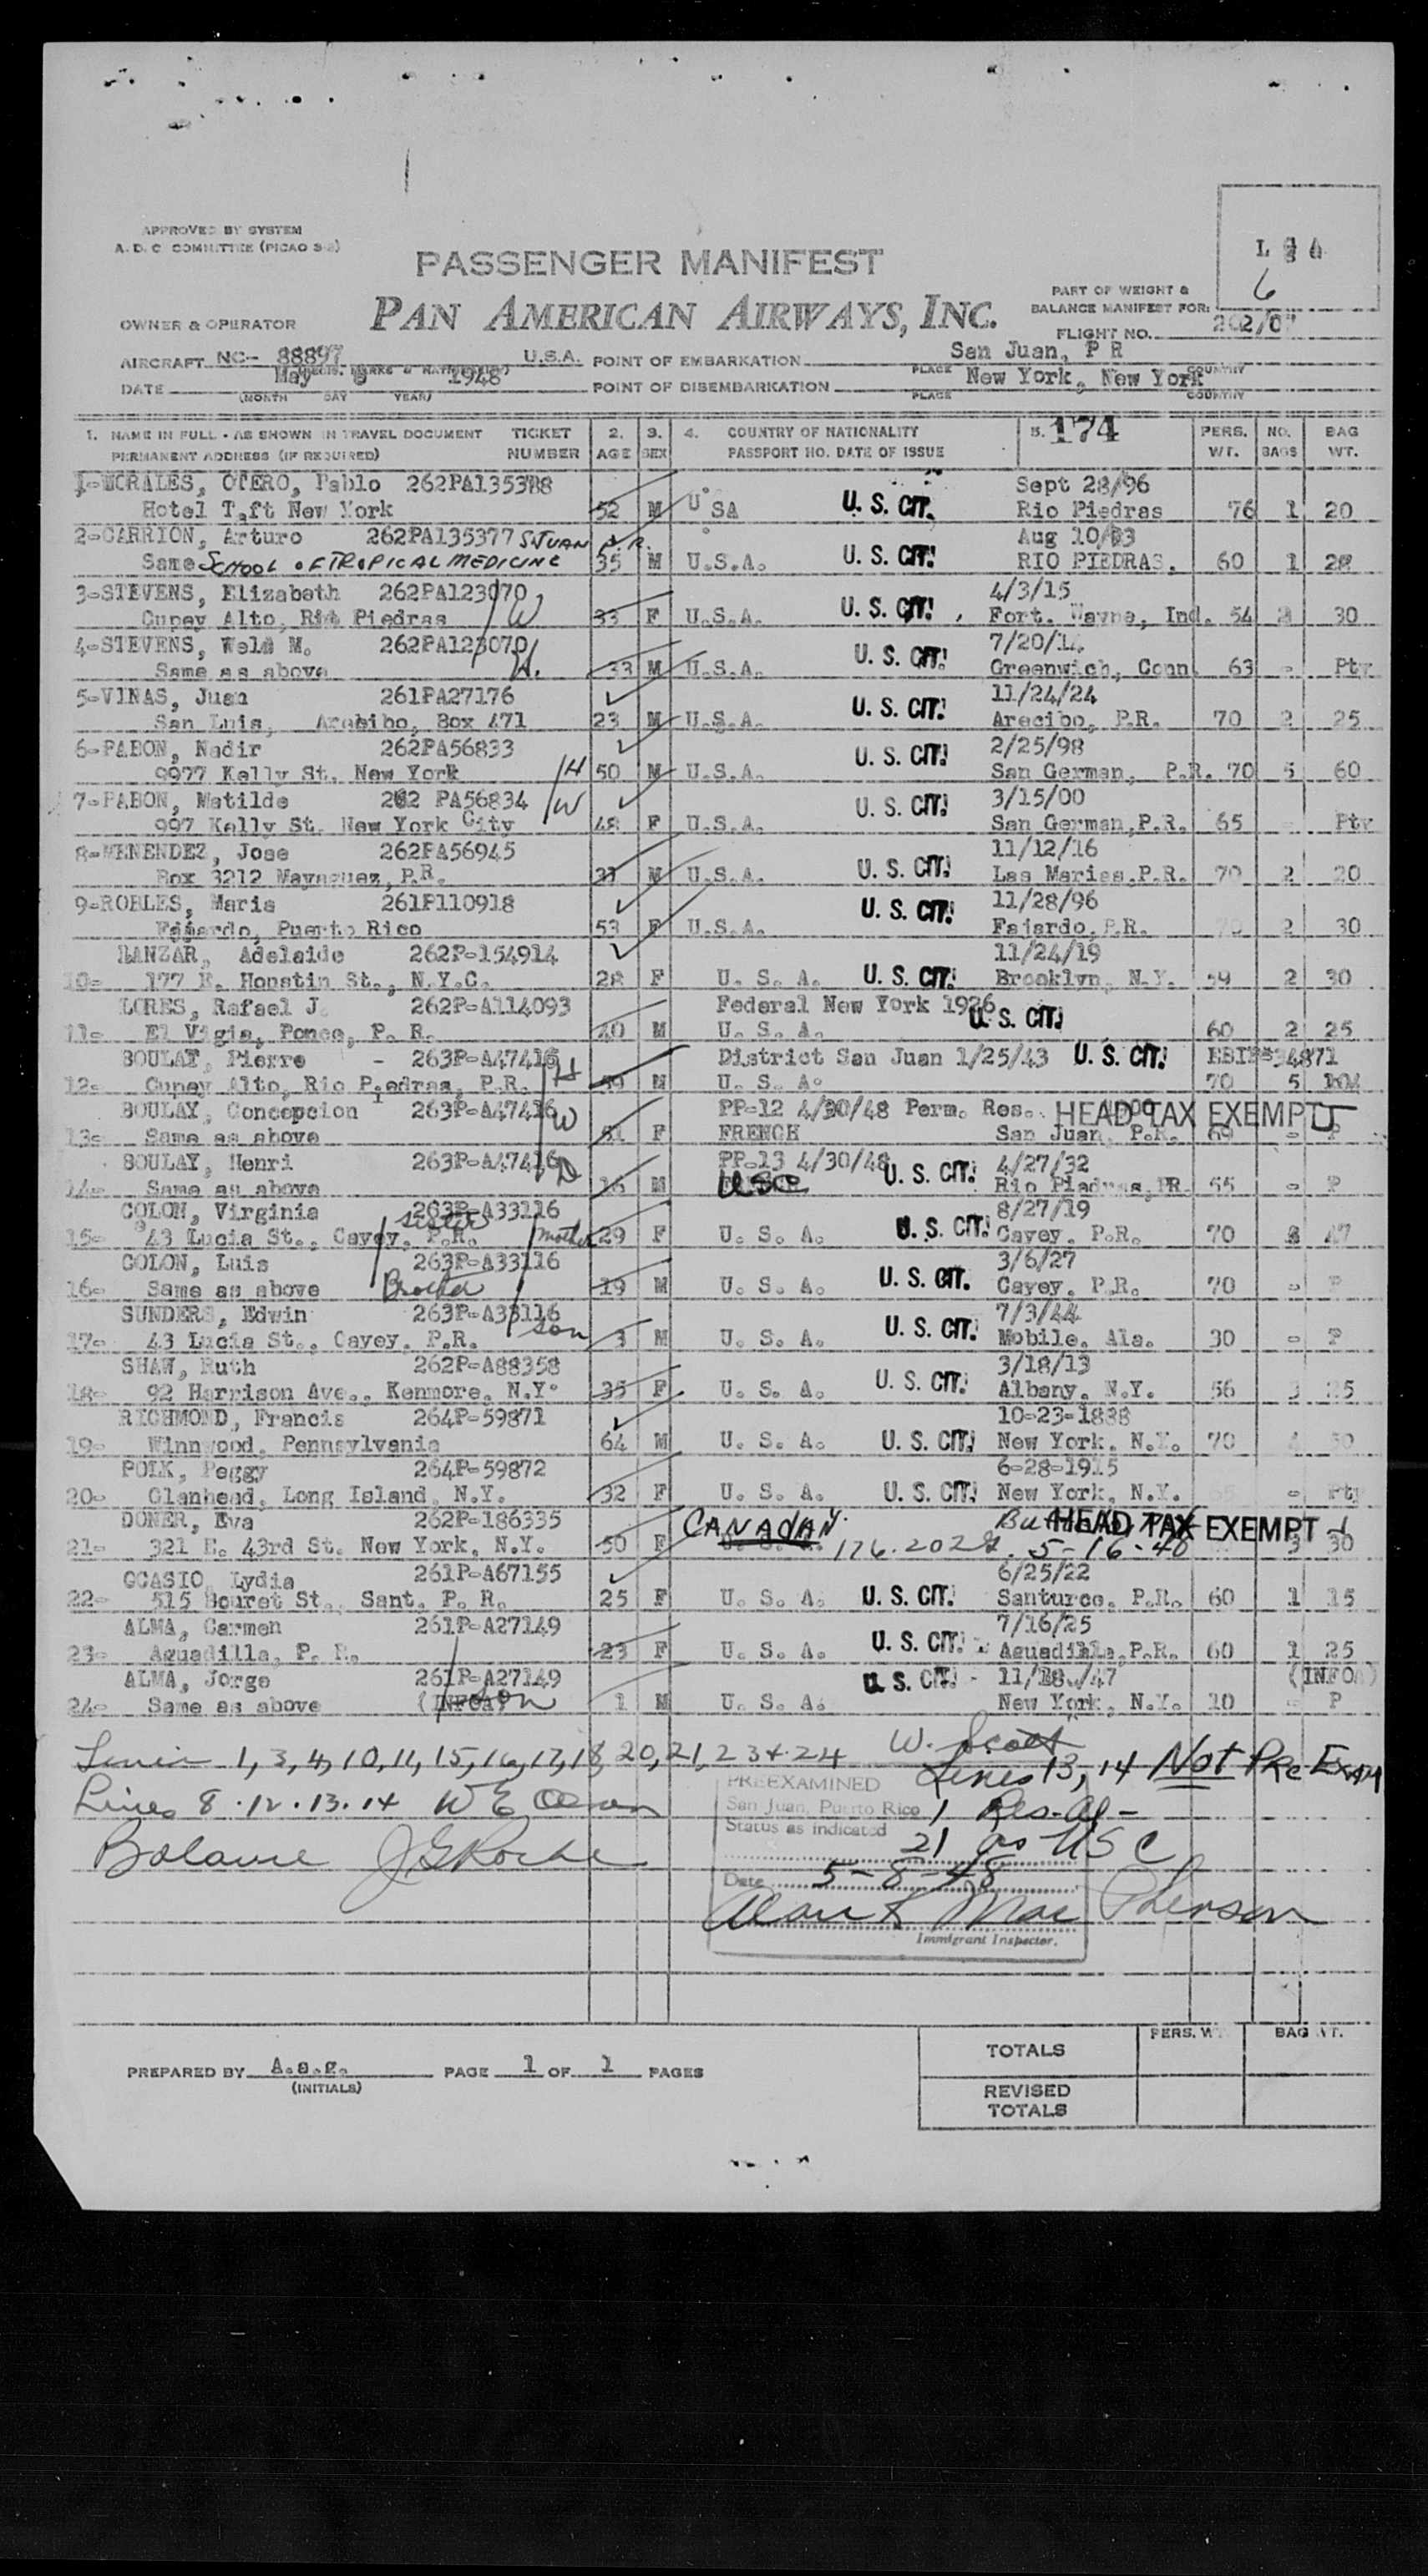 APPROVED BY SYSTEM
A. D. C. COMMITTEE (PICAO 3-2)
PASSENGER MANIFEST
PAN AMERICAN AIRWAYS, INC.
OWNER & OPERATOR
PART OF WEIGHT &
BALANCE MANIFEST FOR:
6
FLIGHT NO.
AIRCRAFT NC- 88897 U.S.A. POINT OF EMBARKATION San Juan, P R
DATE May 8 1948 POINT OF DISEMBARKATION New York, New York
(MONTH DAY YEAR) PLACE COUNTRY
1. NAME IN FULL - AS SHOWN IN TRAVEL DOCUMENT TICKET 2. 3. 4. COUNTRY OF NATIONALITY 5. 174 PERS. NO. BAG
PERMANENT ADDRESS (IF REQUIRED) NUMBER AGE SEX PASSPORT NO. DATE OF ISSUE WT. BAGS WT.
1-MORALES, OTERO, Pablo 262PA135378 Sept 28/96
Hotel Taft New York 52 M U SA U. S. CIT. Rio Piedras 76 1 20
2-CARRION, Arturo 262PA135377 S.JUAN P.R. Aug 10/
Same SCHOOL OF TROPICAL MEDICINE 35 M U.S.A. U. S. CIT! RIO PIEDRAS, 60 1 28
3-STEVENS, Elizabeth 262PA123070 W 4/3/15
Cupey Alto, Rio Piedras 33 F U.S.A. U. S. CIT! Fort. Wayne, Ind. 54 30
4-STEVENS, Weld M. 262PA123070 H. 7/20/14
Same as above 33 M U.S.A. U. S. CIT! Greenwich, Conn 63 - Pty
5-VINAS, Juan 261PA27176 11/24/24
San Luis, Arecibo, Box 471 23 M U.S.A. U. S. CIT! Arecibo, P.R. 70 2 25
6-PABON, Nadir 262PA56833 2/25/98
9977 Kelly St. New York H 50 M U.S.A. U. S. CIT! San German, P.R. 70 5 60
7-PABON, Matilde 262 PA56834 W 3/15/00
997 Kelly St. New York City 48 F U.S.A. U. S. CIT! San German,P.R. 65 - Pty
8-MENENDEZ, Jose 262PA56945 11/12/16
Box 3212 Mayaguez, P.R. 31 M U.S.A. U. S. CIT! Las Marias,P.R. 70 2 20
9-ROBLES, Maria 261P110918 11/28/96
Fajardo, Puerto Rico 53 F U.S.A. U. S. CIT! Fajardo, P.R. 70 2 30
LANZAR, Adelaide 262P-154914 11/24/19
10- 177 E. Honstin St., N.Y.C. 28 F U. S. A. U. S. CIT! Brooklyn, N.Y. 59 2 30
LORES, Rafael J. 262P-A114093 Federal New York 1926
11- El Vigia, Ponce, P. R. 40 M U. S. A. U. S. CIT! 60 2 25
BOULAY, Pierre - 263P-A47416 H District San Juan 1/25/43 U. S. CIT!
12- Cupey Alto, Rio Piedras, P.R. 59 M U. S. A. 70 5 104
BOULAY, Concepcion 263P-A47416 W PP-12 4/30/48 Perm. Res. HEAD TAX EXEMPT
13- Same as above 51 F FRENCH San Juan, P.R. 69 - P
BOULAY, Henri 263P-A47416 PP-13 4/30/48 4/27/32
14- Same as above 16 M USC U. S. CIT! Rio Piedras,PR. 55 - P
COLON, Virginia 263P-A33116 sister 8/27/19
15- 43 Lucia St., Cayey, P.R. mother 29 F U. S. A. U. S. CIT! Cayey, P.R. 70 47
COLON, Luis 263P-A33116 3/6/27
16- Same as above Brother 19 M U. S. A. U. S. CIT. Cayey, P.R. 70 - P
SUNDERS, Edwin 263P-A33116 7/3/44
17- 43 Lucia St., Cayey, P.R. son 3 M U. S. A. U. S. CIT! Mobile, Ala. 30 - P
SHAW, Ruth 262P-A88358 3/18/13
18- 92 Harrison Ave., Kenmore, N.Y. 35 F U. S. A. U. S. CIT! Albany, N.Y. 56 3 35
RICHMOND, Francis 264P-59871 10-23-1888
19- Winnwood, Pennsylvania 64 M U. S. A. U. S. CIT! New York, N.Y. 70 4 50
POLK, Peggy 264P-59872 6-28-1915
20- Glenhead, Long Island, N.Y. 32 F U. S. A. U. S. CIT! New York, N.Y. 65 - Pty
DONER, Eva 262P-186335 CANADIAN HEAD TAX EXEMPT
21- 321 E. 43rd St. New York, N.Y. 50 F U. S. A. 5-16-40 3 30
OCASIO, Lydia 261P-A67155 6/25/22
22- 515 Bouret St., Sant. P. R. 25 F U. S. A. U. S. CIT! Santurce, P.R. 60 1 15
ALMA, Carmen 261P-A27149 7/16/25
23- Aguadilla, P. R. 23 F U. S. A. U. S. CIT! Aguadilla,P.R. 60 1 25
ALMA, Jorge 261P-A27149 11/18/47 (INFOA)
24- Same as above (INFOA) son 1 M U. S. A. U. S. CIT! New York, N.Y. 10 - P
Lines 1, 3, 4, 10, 11, 15, 16, 17, 18, 20, 21, 23 + 24 W. Scott
Lines 13, 14 Not Pre Exam
Lines 8. 12. 13. 14
PREEXAMINED
San Juan, Puerto Rico 1 Res. Al-
Status as indicated 21 as USC
Balance J G Roche
Date 5-8-48
Alan K MacPherson
Immigrant Inspector.
PREPARED BY A.a.g. PAGE 1 OF 1 PAGES
(INITIALS)
PERS. WT. BAG WT.
TOTALS
REVISED
TOTALS